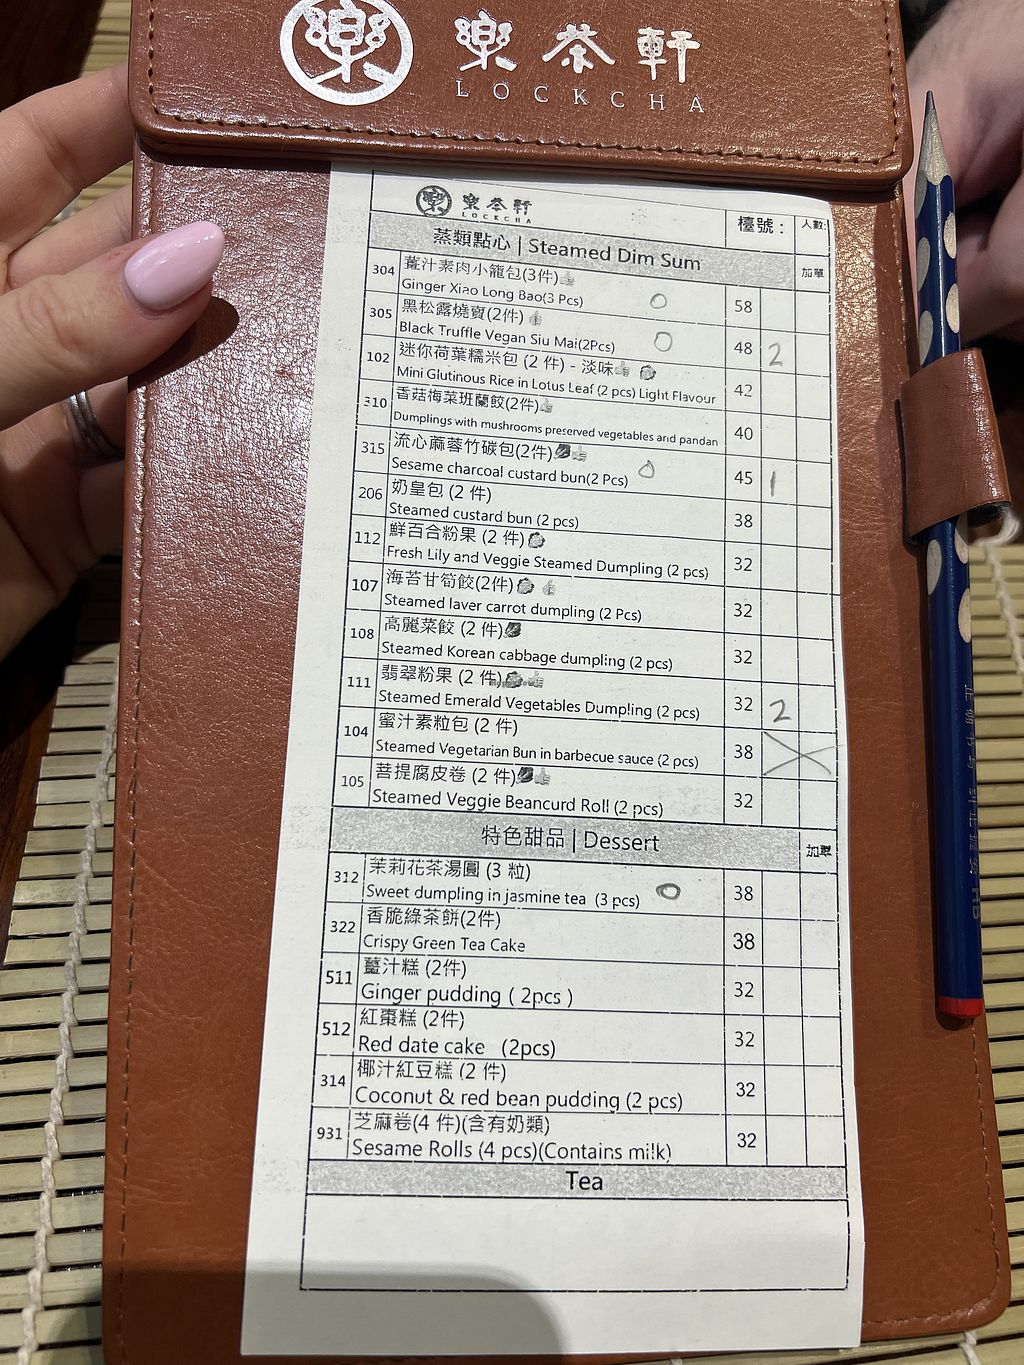 樂 樂茶軒
LOCKCHA
樂 樂茶軒
LOCKCHA
檯號：
人數:
蒸類點心 | Steamed Dim Sum
加單
304 薑汁素肉小籠包(3件)
Ginger Xiao Long Bao(3 Pcs) 58
305 黑松露燒賣(2件)
Black Truffle Vegan Siu Mai(2Pcs) 48 2
102 迷你荷葉糯米包 (2 件) - 淡味
Mini Glutinous Rice in Lotus Leaf (2 pcs) Light Flavour 42
310 香菇梅菜班蘭餃(2件)
Dumplings with mushrooms preserved vegetables and pandan 40
315 流心蔴蓉竹碳包(2件)
Sesame charcoal custard bun(2 Pcs) 45 1
206 奶皇包 (2 件)
Steamed custard bun (2 pcs) 38
112 鮮百合粉果 (2 件)
Fresh Lily and Veggie Steamed Dumpling (2 pcs) 32
107 海苔甘筍餃(2件)
Steamed laver carrot dumpling (2 Pcs) 32
108 高麗菜餃 (2 件)
Steamed Korean cabbage dumpling (2 pcs) 32
111 翡翠粉果 (2 件)
Steamed Emerald Vegetables Dumpling (2 pcs) 32 2
104 蜜汁素粒包 (2 件)
Steamed Vegetarian Bun in barbecue sauce (2 pcs) 38
105 菩提腐皮卷 (2 件)
Steamed Veggie Beancurd Roll (2 pcs) 32
特色甜品 | Dessert
加單
312 茉莉花茶湯圓 (3 粒)
Sweet dumpling in jasmine tea (3 pcs) 38
322 香脆綠茶餅(2件)
Crispy Green Tea Cake 38
511 薑汁糕 (2件)
Ginger pudding ( 2pcs ) 32
512 紅棗糕 (2件)
Red date cake (2pcs) 32
314 椰汁紅豆糕 (2 件)
Coconut & red bean pudding (2 pcs) 32
931 芝麻卷(4 件)(含有奶類)
Sesame Rolls (4 pcs)(Contains milk) 32
Tea
HB